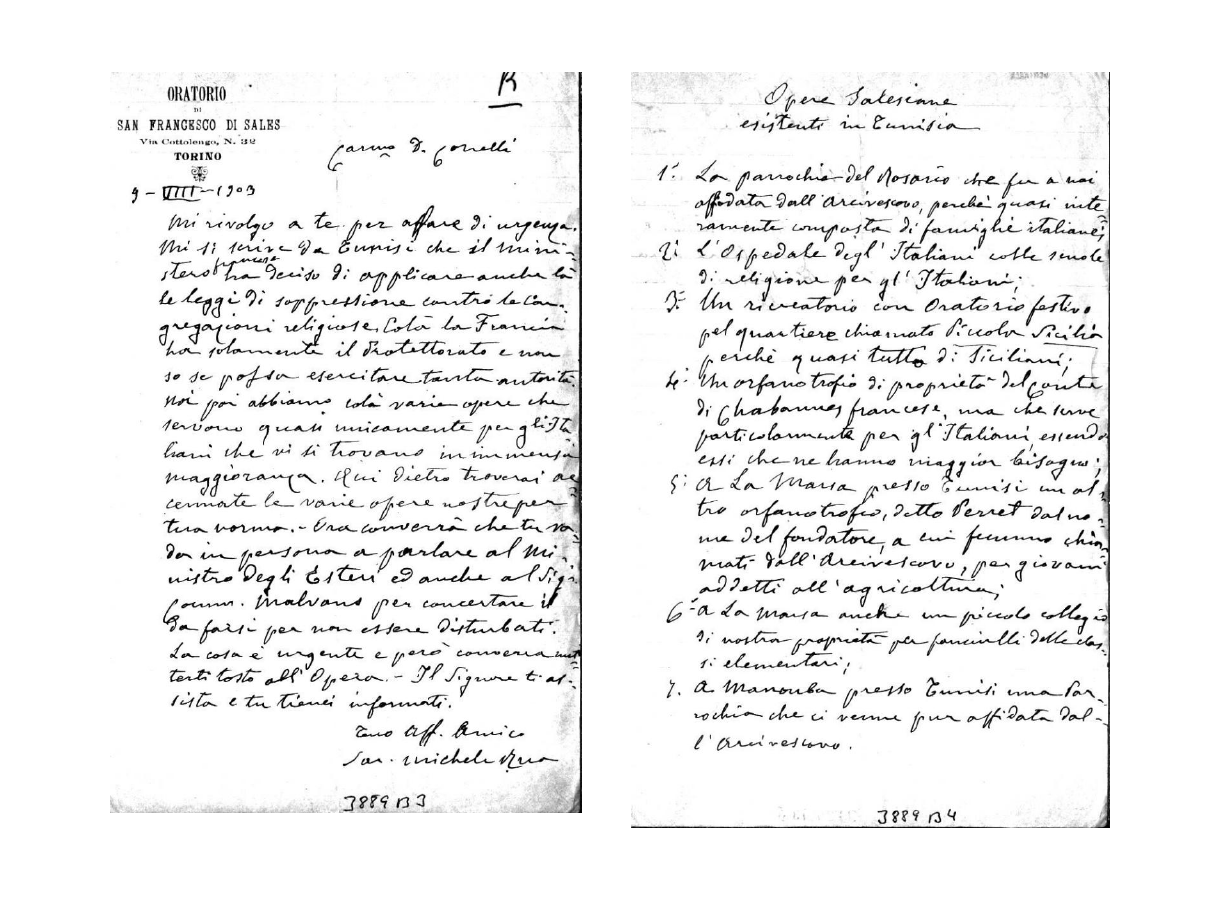 R
ORATORIO
DI
SAN FRANCESCO DI SALES
Via Cottolengo, N. 32
TORINO
9-VIII-1903
Carmo D. Conelli
Mi rivolgo a te per affare di urgenza.
Mi si scrive da Tunisi che il mini-
stero francese ha deciso di applicare anche là
le leggi di soppressione contro le Con-
gregazioni religiose. Colà la Francia
ha solamente il Protettorato e non
so se possa esercitare tanta autorità.
Noi poi abbiamo colà varie opere che
servono quasi unicamente per gl'Ita
liani che vi si trovano in immensa
maggioranza. Qui dietro troverai ac
cennate le varie opere nostre per
tua norma. - Ora converrà che tu va
da in persona a parlare al Mi-
nistro degli Esteri ed anche al Sig.
Comm. Malvano per concertare il
da farsi per non essere disturbati.
La cosa è urgente e però converrà met
terti tosto all'Opera. - Il Signore ti as-
sista e tu tienci informati.
Tuo Aff. Amico
Sac. Michele Rua
3889 B 3
Opere Salesiane
esistenti in Tunisia
1° La parrochia del Rosario che fu a noi
affidata dall'Arcivescovo, perchè quasi inte
ramente composta di famiglie italiane;
2° L'Ospedale degl'Italiani colle scuole
di religione per gl'Italiani;
3° Un ricreatorio con Oratorio festivo
pel quartiere chiamato Piccola Sicilia
perchè quasi tutto di Siciliani;
4° Un orfanotrofio di proprietà del Conte
di Chabannes francese, ma che serve
particolarmente per gl'Italiani, essendo
essi che ne hanno maggior bisogno;
5° A La Marsa presso Tunisi un al-
tro orfanotrofio, detto Perret dal no-
me del fondatore, a cui fummo chia-
mati dall'Arcivescovo, per giovani
addetti all'agricoltura;
6° A La Marsa anche un piccolo collegio
di nostra proprietà per fanciulli delle clas-
si elementari;
7. A Manouba presso Tunisi una Par-
rochia che ci venne pur affidata dal-
l'Arcivescovo.
3889 B 4